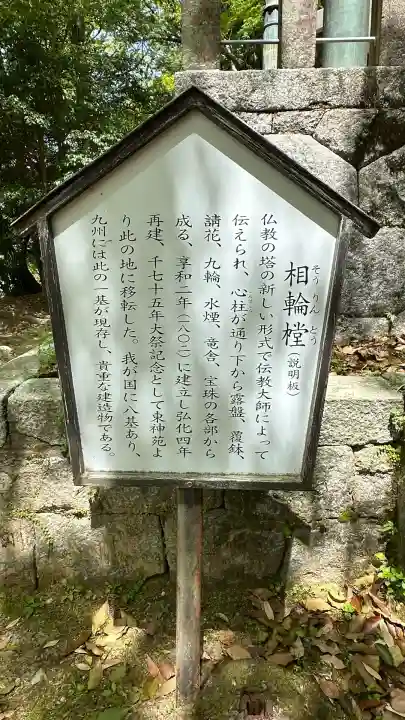 相輪樘（説明板）
そうりんとう
仏教の塔の新しい形式で伝教大師によって
伝えられ、心柱が通り下から露盤、覆鉢、
請花、九輪、水煙、竜舎、宝珠の各部から
成る、享和二年（一八〇二）に建立し弘化四年
再建、千七十五年大祭記念として東神苑よ
り此の地に移転した。我が国に八基あり、
九州には此の一基が現存し、貴重な建造物である。